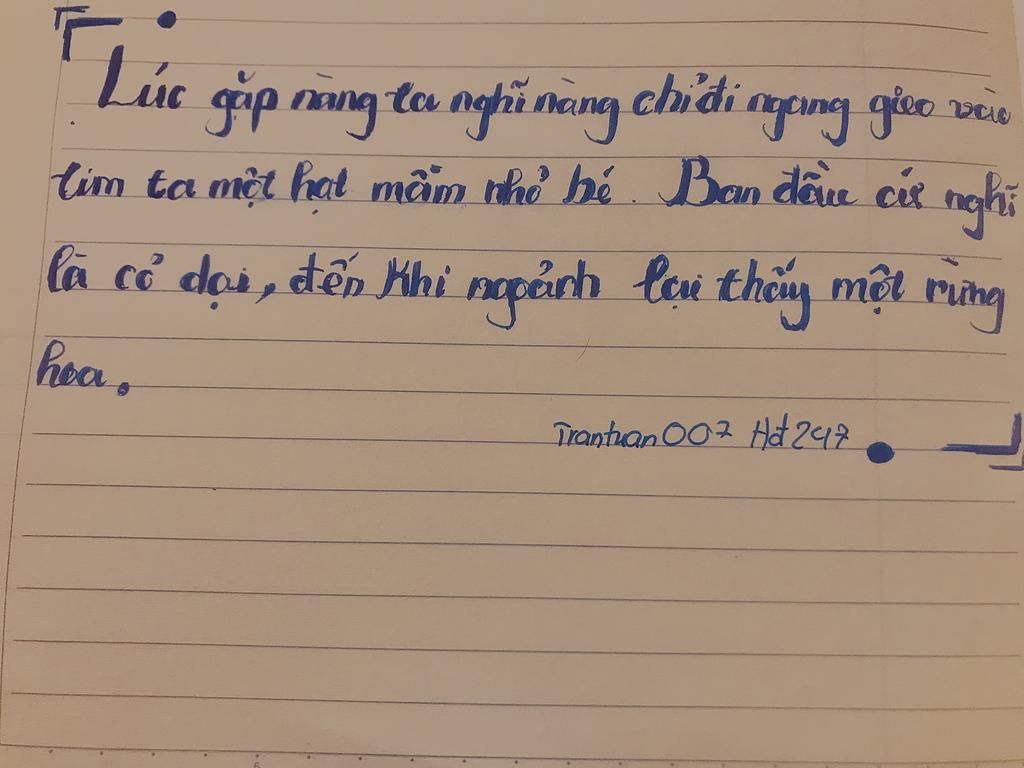 Lúc gặp nàng ta nghĩ nàng chỉ đi ngang gieo vào
tim ta một hạt mầm nhỏ bé. Ban đầu cứ nghĩ
là cỏ dại, đến khi ngoảnh lại thấy một rừng
hoa.
Trantuan007 Hd247